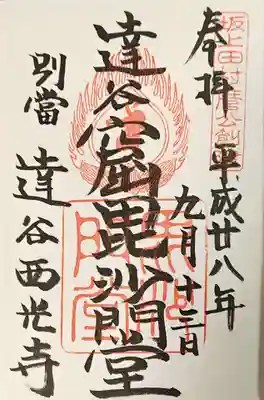 坂上田村麿公創建
奉拝 平成廿八年
九月十三日
達谷窟毘沙門堂
別當 達谷西光寺